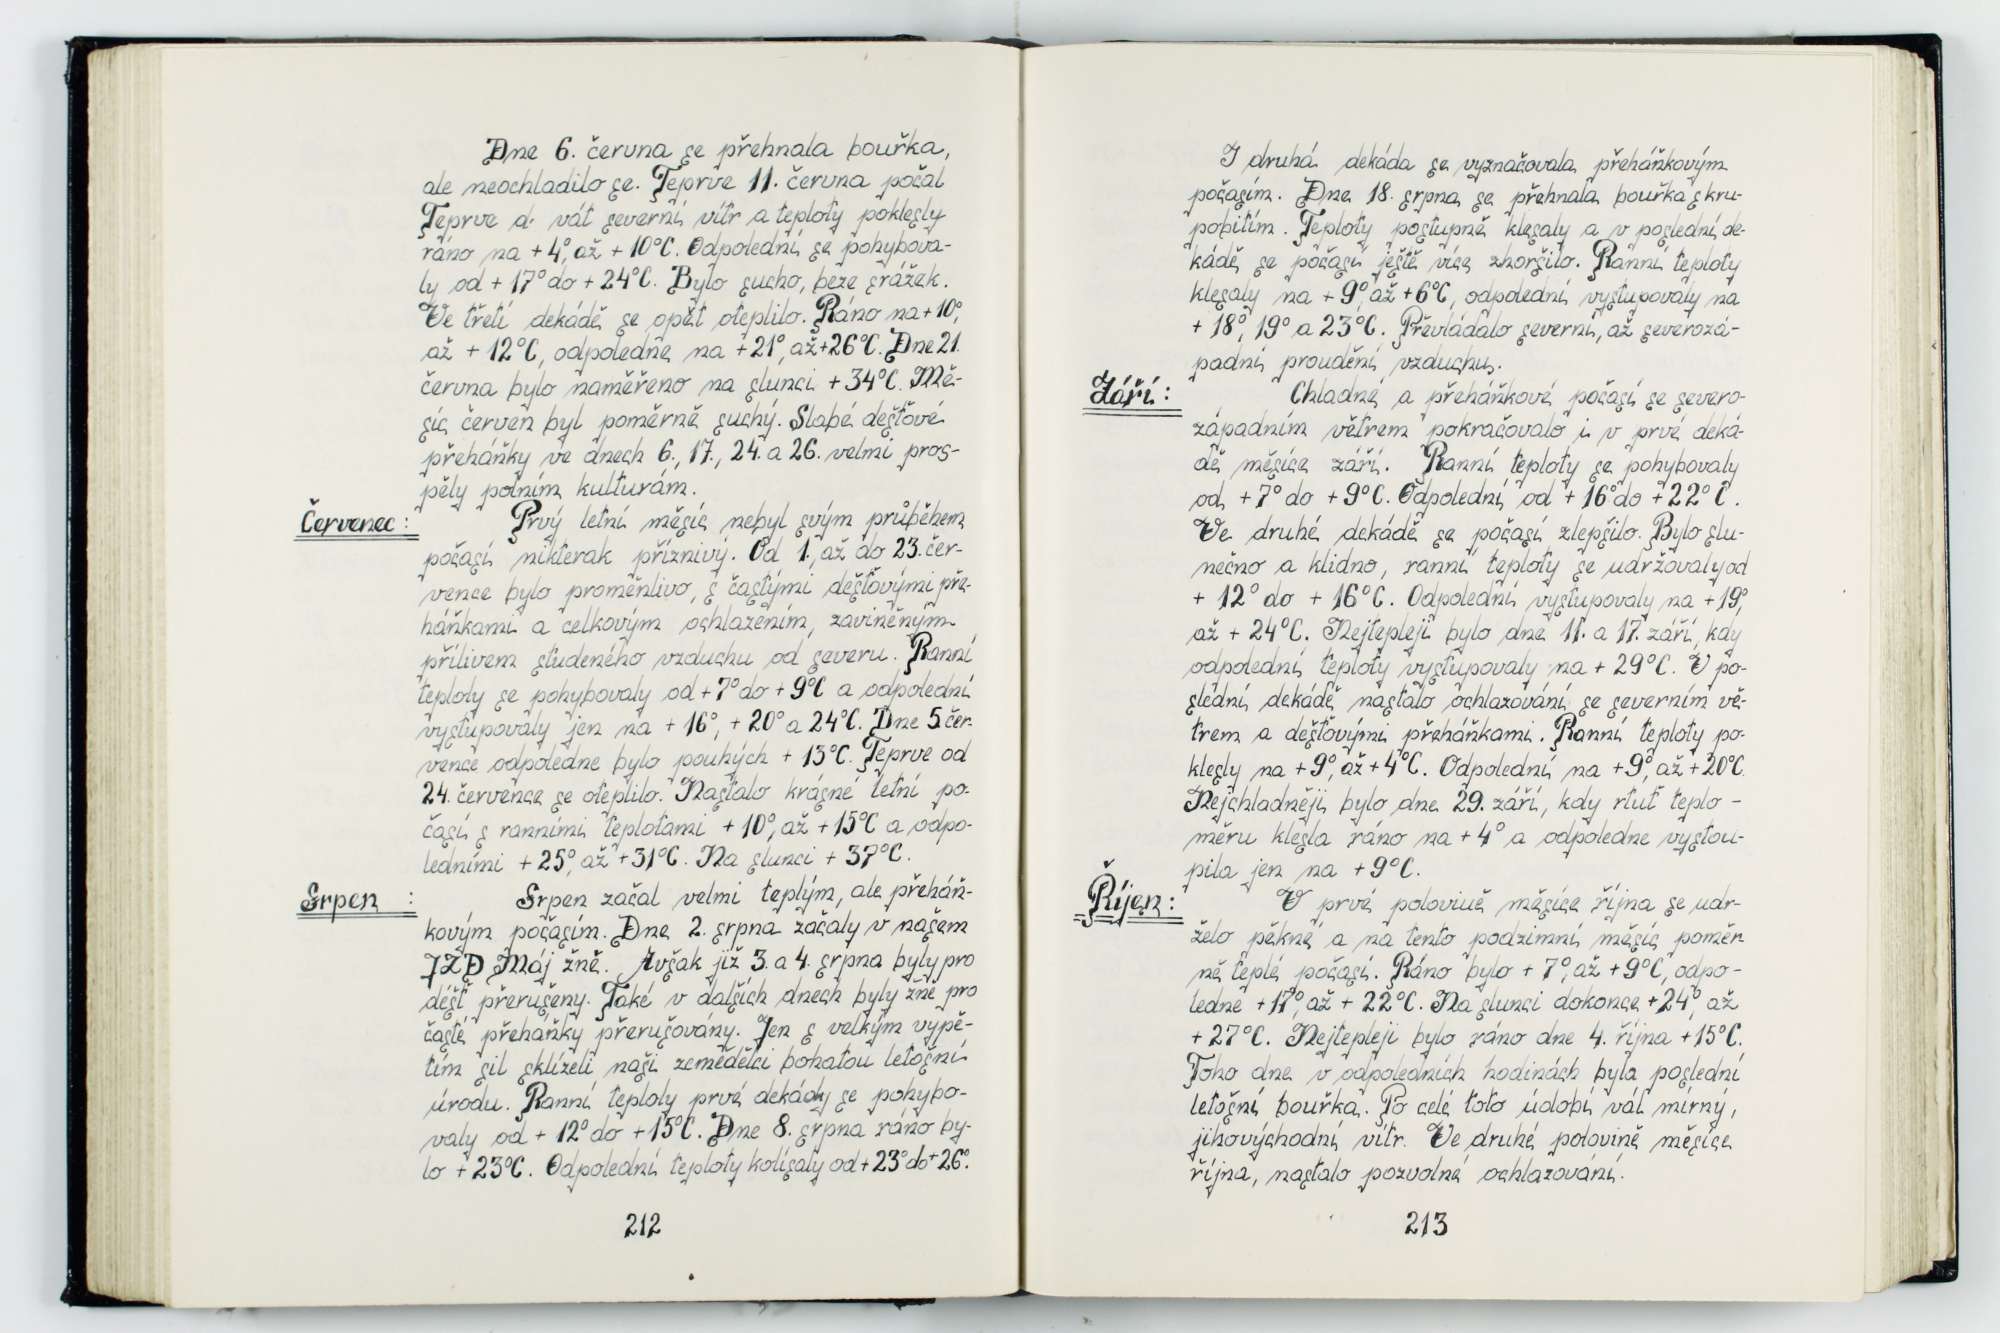 Dne 6. června se přehnala bouřka,
ale neochladilo se. Teprve 11. června počal
Teprve d. vát severní vítr a teploty poklesly
ráno na +4°, až +10°C. Odpolední se pohybova-
ly od +17° do +24°C. Bylo sucho, beze srážek.
Ve třetí dekádě se opět oteplilo. Ráno na +10°,
až +12°C, odpoledne na +21°, až +26°C. Dne 21.
června bylo naměřeno na slunci +34°C. Mě-
síc červen byl poměrně suchý. Slabé dešťové
přeháňky ve dnech 6., 17., 24. a 26. velmi pros-
pěly polním kulturám.
Červenec: Prvý letní měsíc nebyl svým průběhem
počasí nikterak příznivý. Od 1., až do 23. čer-
vence bylo proměnlivo, s častými dešťovými pře-
háňkami a celkovým ochlazením, zaviněným
přílivem studeného vzduchu od severu. Ranní
teploty se pohybovaly od +7° do +9°C a odpolední
vystupovaly jen na +16°, +20° a 24°C. Dne 5. čer-
vence odpoledne bylo pouhých +13°C. Teprve od
24. července se oteplilo. Nastalo krásné letní po-
časí s ranními teplotami +10°, až +15°C a odpo-
ledními +25°, až +31°C. Na slunci +37°C.
Srpen : Srpen začal velmi teplým, ale přeháň-
kovým počasím. Dne 2. srpna začaly v našem
JZD Máj žně. Avšak již 3. a 4. srpna byly pro
déšť přerušeny. Také v dalších dnech byly žně pro
časté přeháňky přerušovány. Jen s velkým vypě-
tím sil sklízeli naši zemědělci bohatou letošní
úrodu. Ranní teploty prvé dekády se pohybo-
valy od +12° do +15°C. Dne 8. srpna ráno by-
lo +23°C. Odpolední teploty kolísaly od +23° do +26°.
212
I druhá dekáda se vyznačovala přeháňkovým
počasím. Dne 18. srpna se přehnala bouřka s kru-
pobitím. Teploty postupně klesaly a v poslední de-
kádě se počasí ještě více zhoršilo. Ranní teploty
klesaly na +9°, až +6°C, odpolední vystupovaly na
+18°, 19° a 23°C. Převládalo severní, až severozá-
padní proudění vzduchu.
Září: Chladné a přeháňkové počasí se severo-
západním větrem pokračovalo i v prvé deká-
dě měsíce září. Ranní teploty se pohybovaly
od +7° do +9°C. Odpolední od +16° do +22°C.
Ve druhé dekádě se počasí zlepšilo. Bylo slu-
nečno a klidno, ranní teploty se udržovaly od
+12° do +16°C. Odpolední vystupovaly na +19°,
až +24°C. Nejtepleji bylo dne 11. a 17. září, kdy
odpolední teploty vystupovaly na +29°C. V po-
slední dekádě nastalo ochlazování se severním vě-
trem a dešťovými přeháňkami. Ranní teploty po-
klesly na +9°, až +4°C. Odpolední na +9°, až +20°C.
Nejchladněji bylo dne 29. září, kdy rtuť teplo-
měru klesla ráno na +4° a odpoledne vystou-
pila jen na +9°C.
Říjen: V prvé polovině měsíce října se udr-
želo pěkné a na tento podzimní měsíc poměr-
ně teplé počasí. Ráno bylo +7°, až +9°C, odpo-
ledne +17°, až +22°C. Na slunci dokonce +24°, až
+27°C. Nejtepleji bylo ráno dne 4. října +15°C.
Toho dne v odpoledních hodinách byla poslední
letošní bouřka. Po celé toto údobí vál mírný,
jihovýchodní vítr. Ve druhé polovině měsíce
října, nastalo pozvolné ochlazování.
213